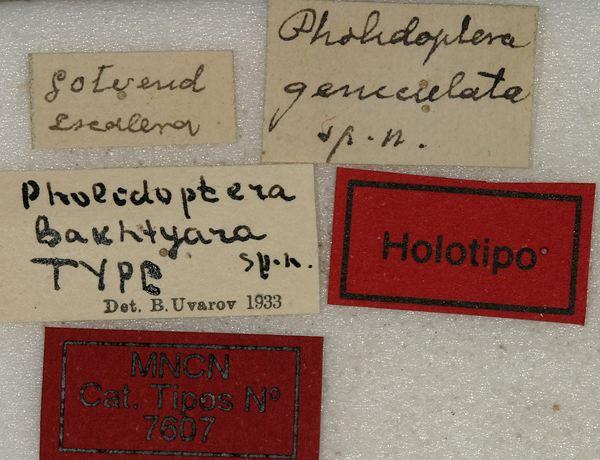 Gotvend
Escalera
Pholidoptera
geniculata
sp. n.
Pholidoptera
Bakhtyara
TYPE sp. n.
Det. B. Uvarov 1933
Holotipo
MNCN
Cat. Tipos Nº
7607